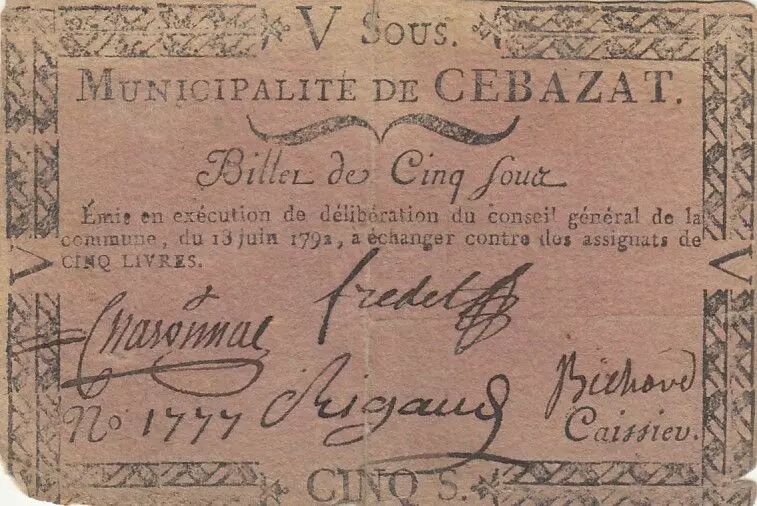 V Sous.
MUNICIPALITÉ DE CEBAZAT.
Billet de Cinq sous
Émis en exécution de délibération du conseil général de la
commune, du 13 juin 1792, à échanger contre des assignats de
CINQ LIVRES.
V V
fredet
No 1777 Rigaud
Caissier.
CINQ S.